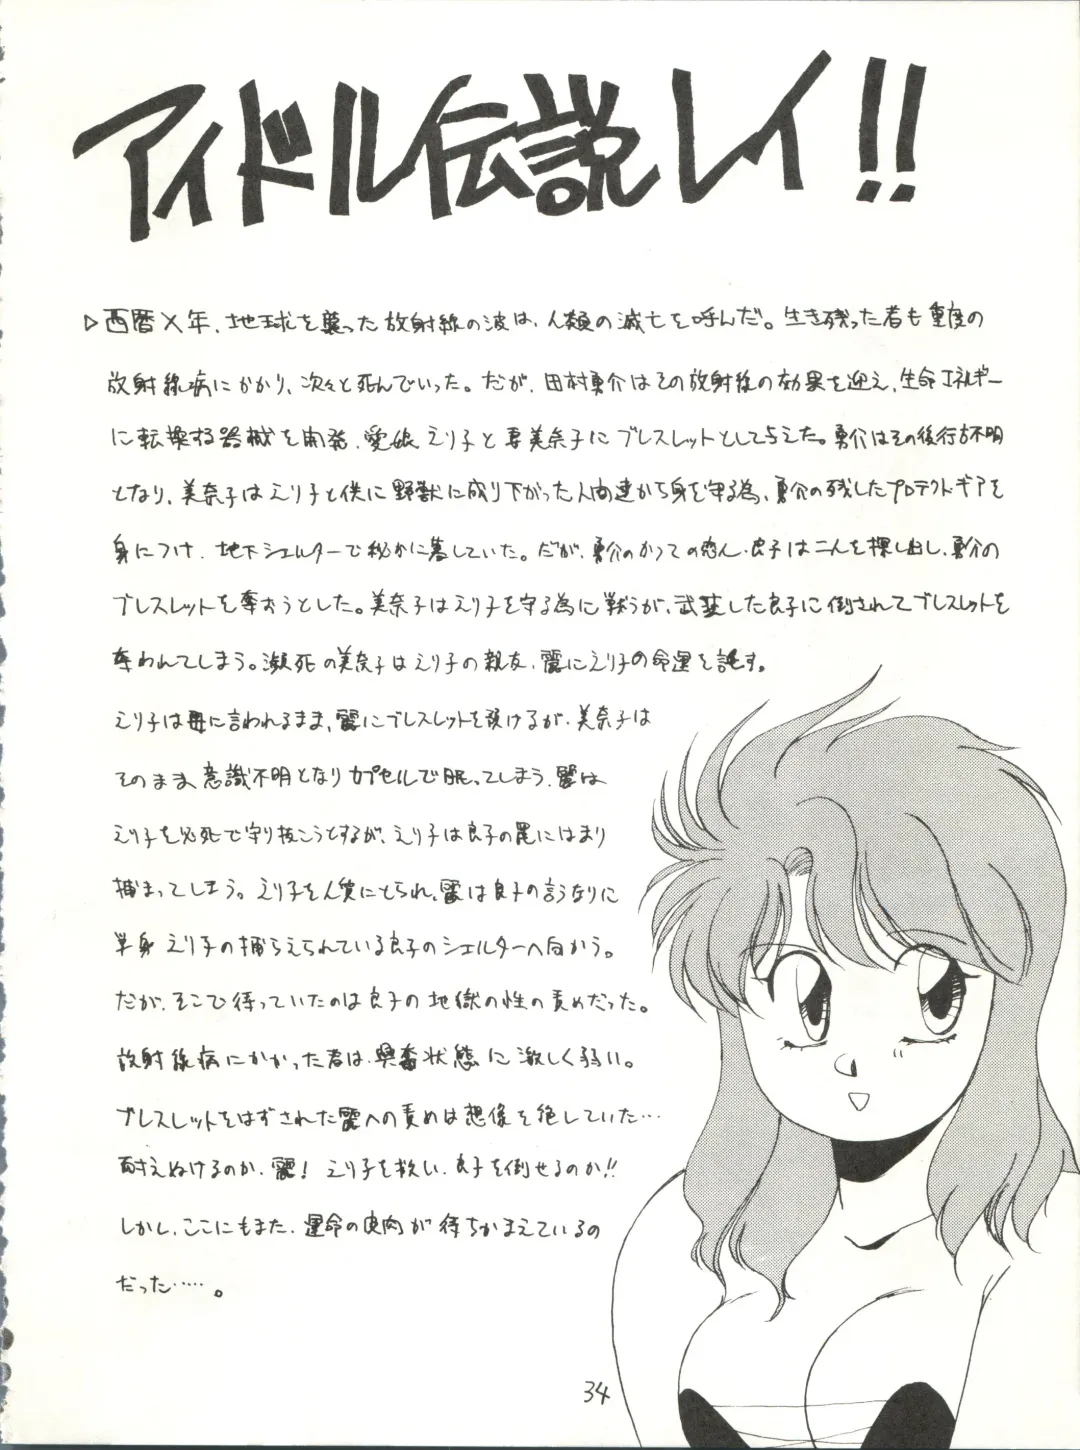 アイドル伝説レイ!!
▷西暦X年、地球を襲った放射線の波は、人類の滅亡を呼んだ。生き残った者も重度の
放射線病にかかり、次々と死んでいった。だが、田村勇介はその放射線の効果を迎え、生命エネルギー
に転換する器械を開発、愛娘えり子と妻美奈子にブレスレットとして与えた。勇介はその後行方不明
となり、美奈子はえり子と供に野獣に成り下がった人間達から身を守る為、勇介の残したプロテクトギアを
身につけ、地下シェルターで秘かに暮していた。だが、勇介のかつての恋人・良子は二人を探し出し、勇介の
ブレスレットを奪おうとした。美奈子はえり子を守る為に戦うが、武装した良子に倒されてブレスレットを
奪われてしまう。瀕死の美奈子はえり子の親友、麗にえり子の命運を託す。
えり子は母に言われるまま、麗にブレスレットを預けるが、美奈子は
そのまま意識不明となりカプセルで眠ってしまう。麗は
えり子を必死で守り抜こうとするが、えり子は良子の罠にはまり
捕まってしまう。えり子を人質にとられ、麗は良子の言うなりに
単身えり子の捕らえられている良子のシェルターへ向かう。
だが、そこで待っていたのは良子の地獄の性の責めだった。
放射線病にかかった者は、興奮状態に激しく弱い。
ブレスレットをはずされた麗への責めは想像を絶していた…
耐えぬけるのか、麗!えり子を救い、良子を倒せるのか!!
しかし、ここにもまた、運命の皮肉が待ちかまえているの
だった……。
34